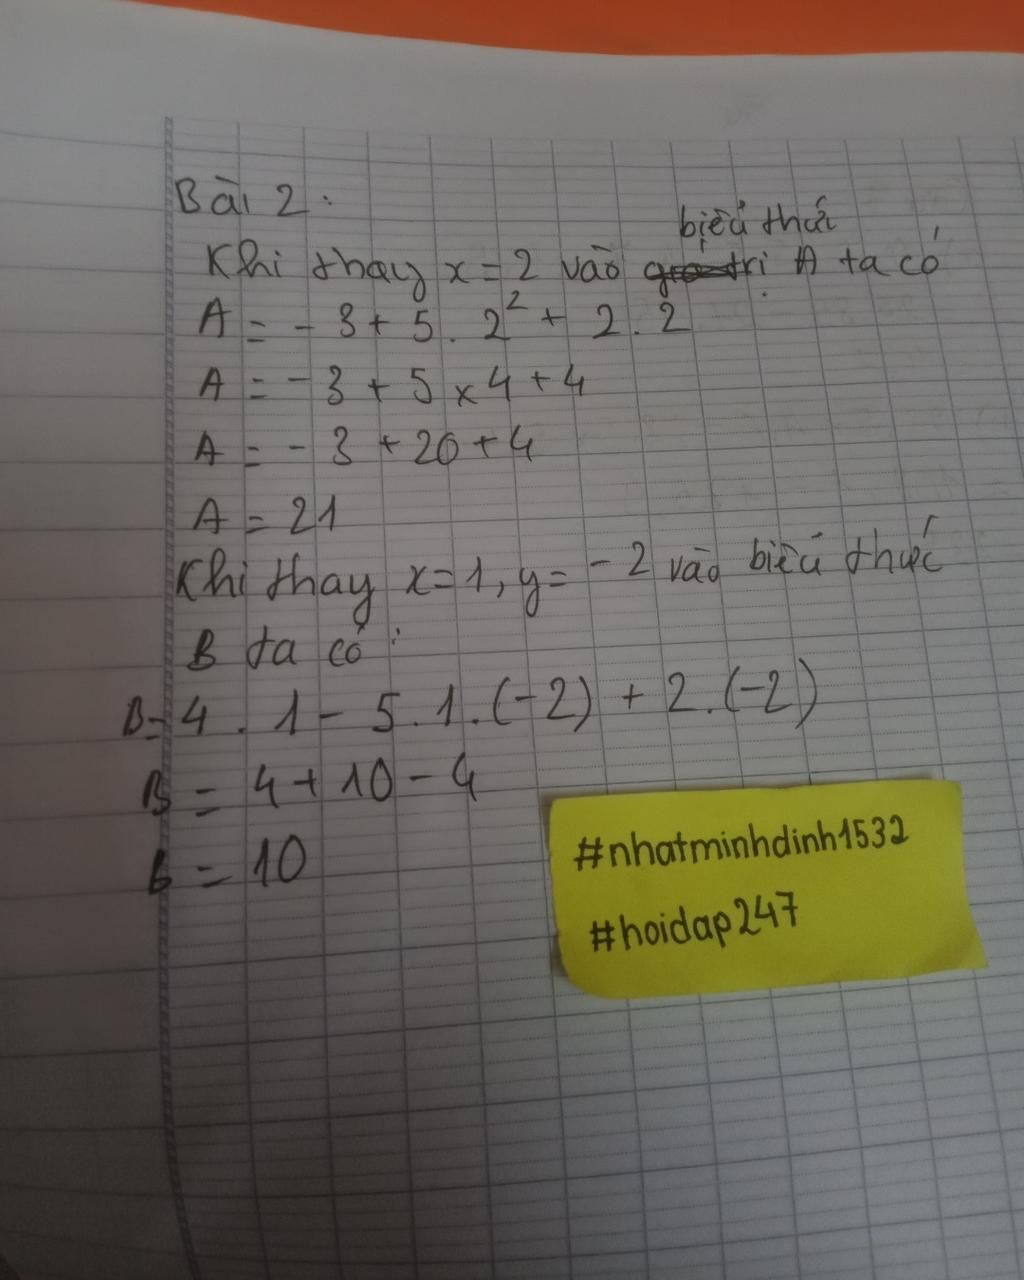 Bài 2:
biểu thức
Khi thay x = 2 vào trị A ta có
A = - 3 + 5 . 2² + 2 . 2
A = - 3 + 5 x 4 + 4
A = - 3 + 20 + 4
A = 21
Khi thay x = 1, y = - 2 vào biểu thức
B ta có:
B = 4 . 1 - 5 . 1 . (-2) + 2 . (-2)
B = 4 + 10 - 4
B = 10
#nhatminhdinh1532
#hoidap247